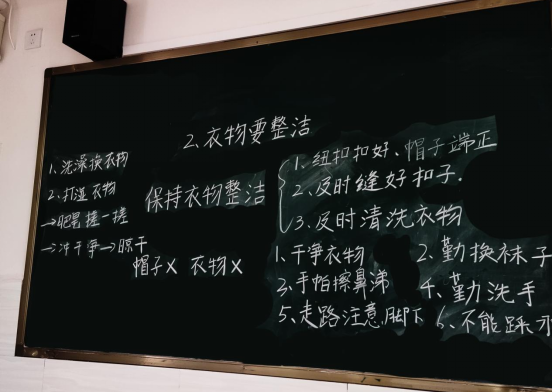 2.衣物要整洁
1、洗澡换衣物
2、打湿衣物
→肥皂搓一搓
→冲干净→晾干
保持衣物整洁
1、纽扣扣好、帽子端正
2、及时缝好扣子.
3、及时清洗衣物
帽子× 衣物×
1、干净衣物 2、勤换袜子
3、手帕擦鼻涕 4、勤洗手
5、走路注意脚下 6、不能踩